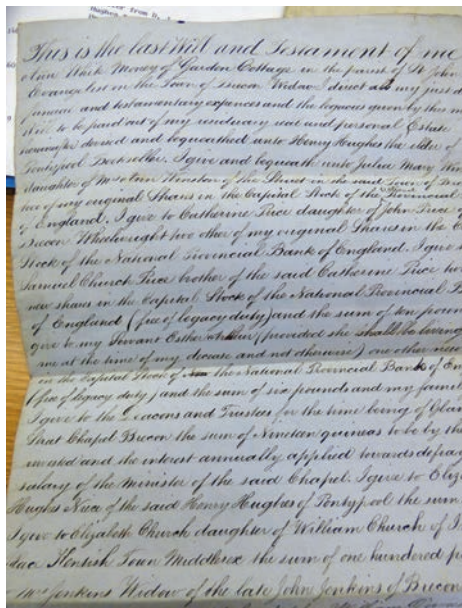 This is the last Will and Testament of me
Mark Money of Garden Cottage in the parish of St John
Evangelist in the Town of Brecon Widow I direct all my just d
funeral and testamentary expences and the legacies given by this m
Will to be paid out of my residuary real and personal Estate
devised and bequeathed unto Henry Hughes the elder of
Pontypool Bookseller. I give and bequeath unto Julia Mary Win
daughter of Mr Winston of the Street in the said Town of Bre
two of my original Shares in the Capital Stock of the Provincial
of England. I give to Catherine Price daughter of John Price of
Brecon Wheelwright two other of my original Shares in the C
Stock of the National Provincial Bank of England. I give
Samuel Church Price brother of the said Catherine Price tw
new shares in the Capital Stock of the National Provincial B
of England (free of legacy duty) and the sum of ten poun
give to my Servant Esther (provided she shall be living
me at the time of my decease and not otherwise) one other new
in the Capital Stock of the National Provincial Bank of En
(free of legacy duty) and the sum of six pounds and my
I give to the Deacons and Trustees for the time being of Glam
Street Chapel Brecon the sum of Nineteen guineas to be by the
invested and the interest annually applied towards defray
salary of the Minister of the said Chapel. I give to Eliz
Hughes Niece of the said Henry Hughes of Pontypool the sum
I give to Elizabeth Church daughter of William Church of
Kentish Town Middlesex the sum of one hundered p
Mrs Jenkins Widow of the late John Jenkins of Brecon